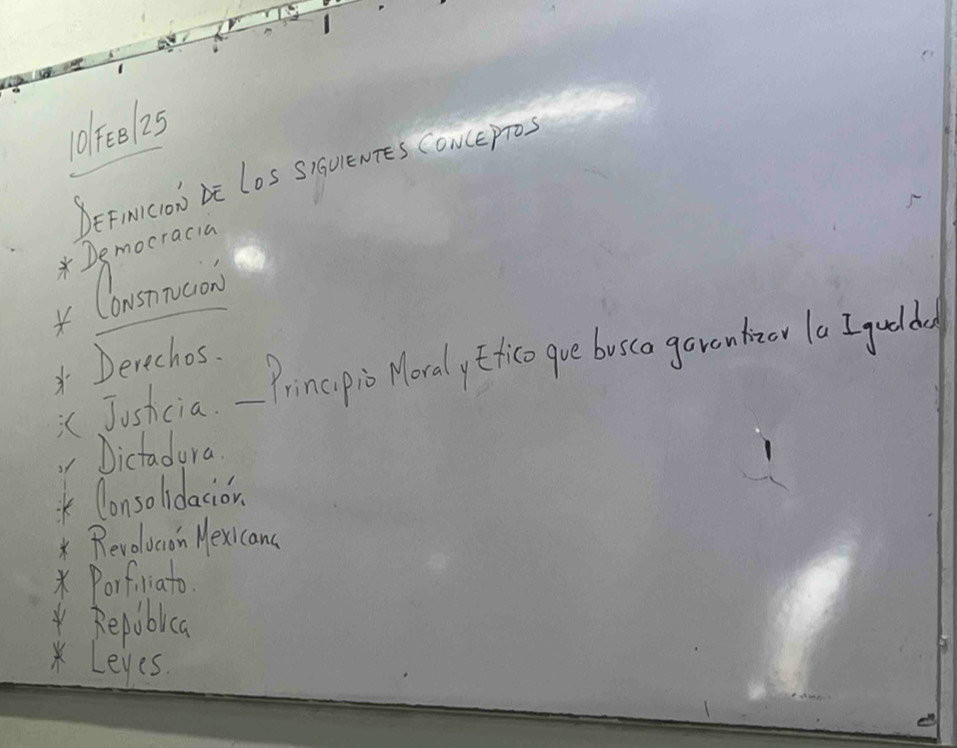 10/FEB/25
DEFINICIÓN DE LOS SIGUIENTES CONCEPTOS
* Democracia
* CONSTITUCIÓN
* Derechos.
* Justicia. — Principio Moral y Etico que busca garantizar la Igualdad
* Dictadura.
* Consolidación.
* Revolución Mexicana
* Porfiriato.
* República
* Leyes.